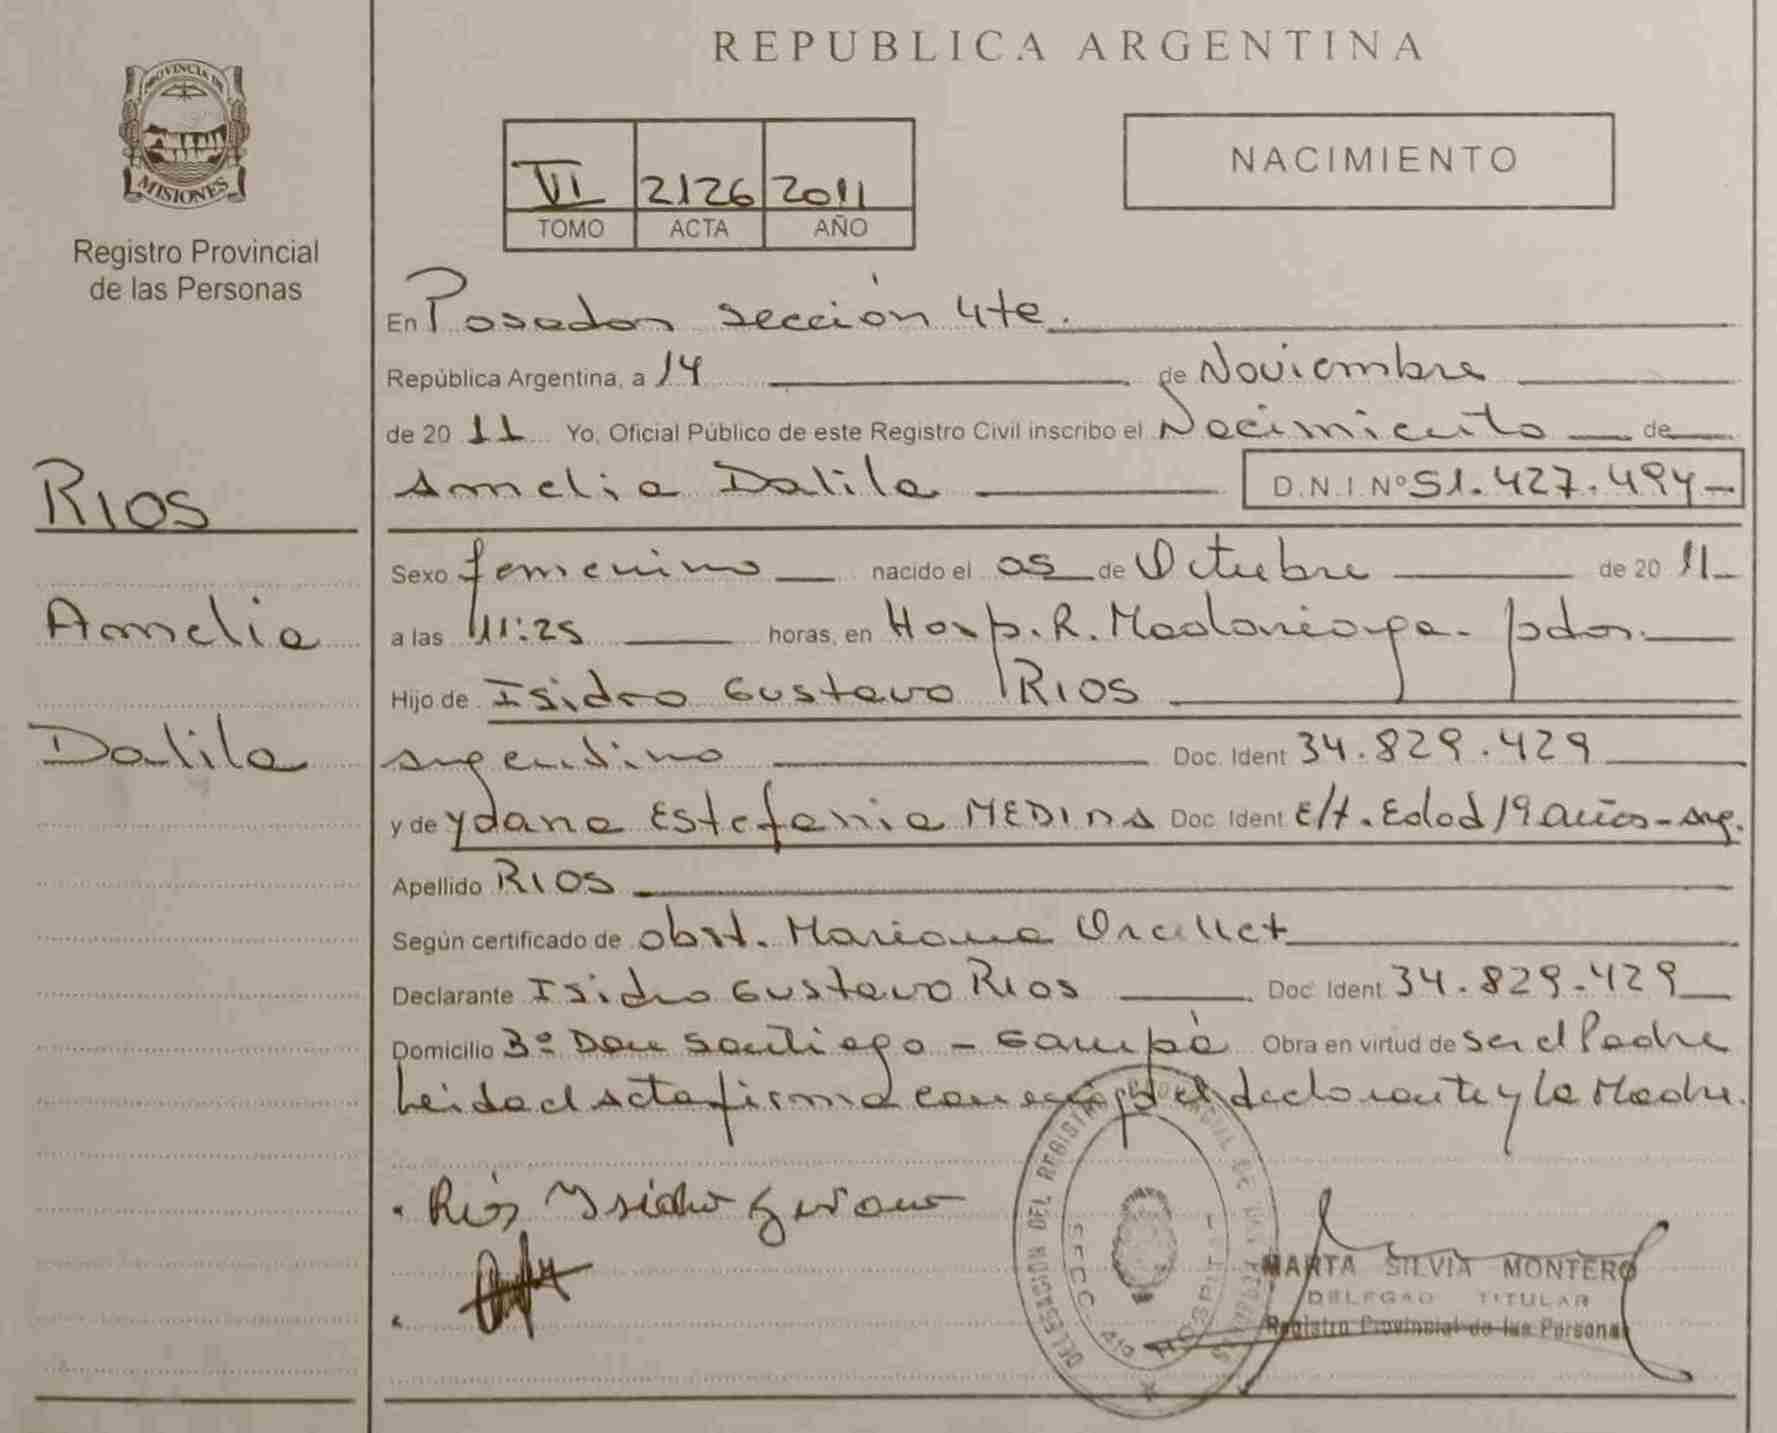 REPUBLICA ARGENTINA
PROVINCIA DE
MISIONES
Registro Provincial
de las Personas
VI 2126 2011
TOMO ACTA AÑO
NACIMIENTO
RIOS
Amelia
Dalila
En Posadas sección 4ta.
República Argentina, a 14 de Noviembre
de 20 11 Yo, Oficial Público de este Registro Civil inscribo el Nacimiento de
Amelia Dalila D.N.I Nº 51.427.494
Sexo femenino nacido el 05 de Octubre de 20 11
a las 11:25 horas, en Hosp. R. Madariaga - pdas.
Hijo de Isidro Gustavo RIOS
argentino Doc. Ident 34.829.429
y de Ydana Estefania MEDINA Doc. Ident E/t. Edad 19 años - arg.
Apellido RIOS
Según certificado de obst. Mariana
Declarante Isidro Gustavo Rios Doc. Ident 34.829.429
Domicilio 3º Don Santiago - Garupá Obra en virtud de ser el Padre
Leida el acta firma conmigo el declarante y la Madre.
Rios Ysidro Gustavo
DELEGACION DEL REGISTRO PROVINCIAL DE LAS PERSONAS
SECC 4ta HOSPITAL
MARTA SILVIA MONTERO
DELEGAD TITULAR
Registro Provincial de las Personas